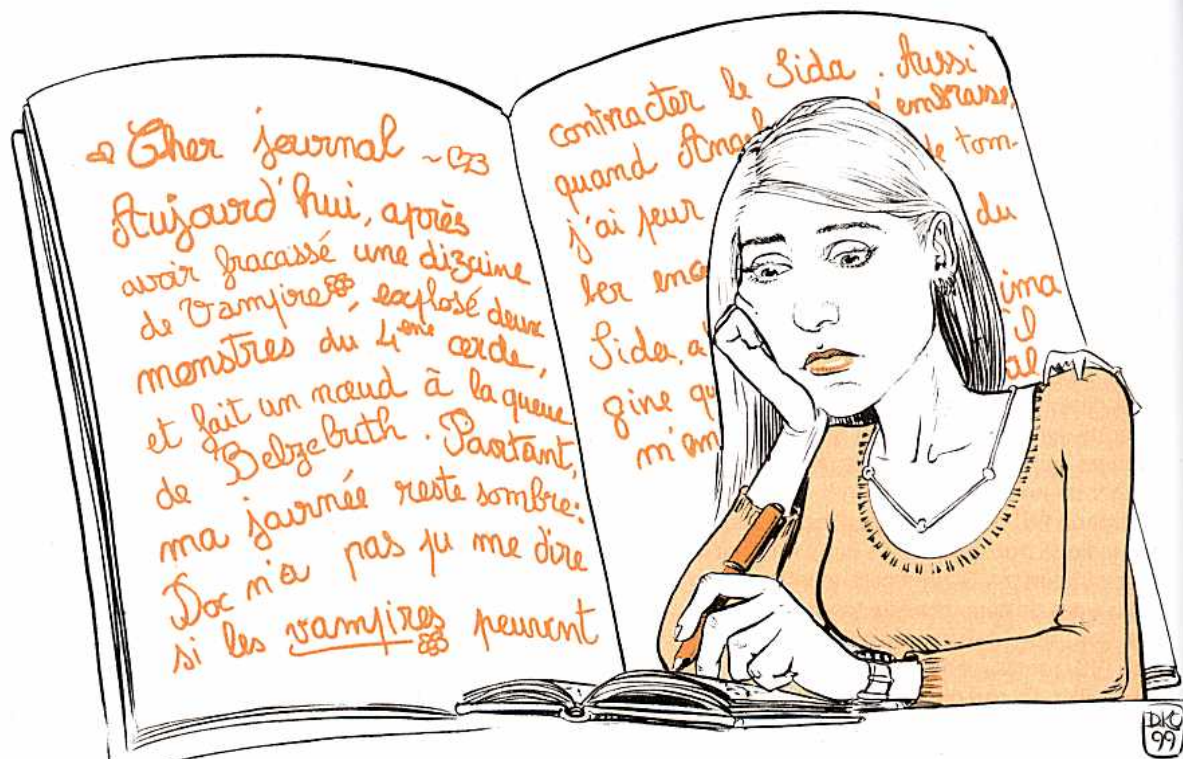 Cher journal
Aujourd'hui, après
avoir fracassé une dizaine
de Vampires, explosé deux
monstres du 4ème cercle,
et fait un nœud à la queue
de Belzebuth. Partant,
ma journée reste sombre:
Doc n'a pas pu me dire
si les vampires peuvent
contracter le Sida. Aussi
quand Angel m'embrasse,
j'ai peur de tom-
ber du
Sida, ima
gine qu il
m'am al
DKC
99